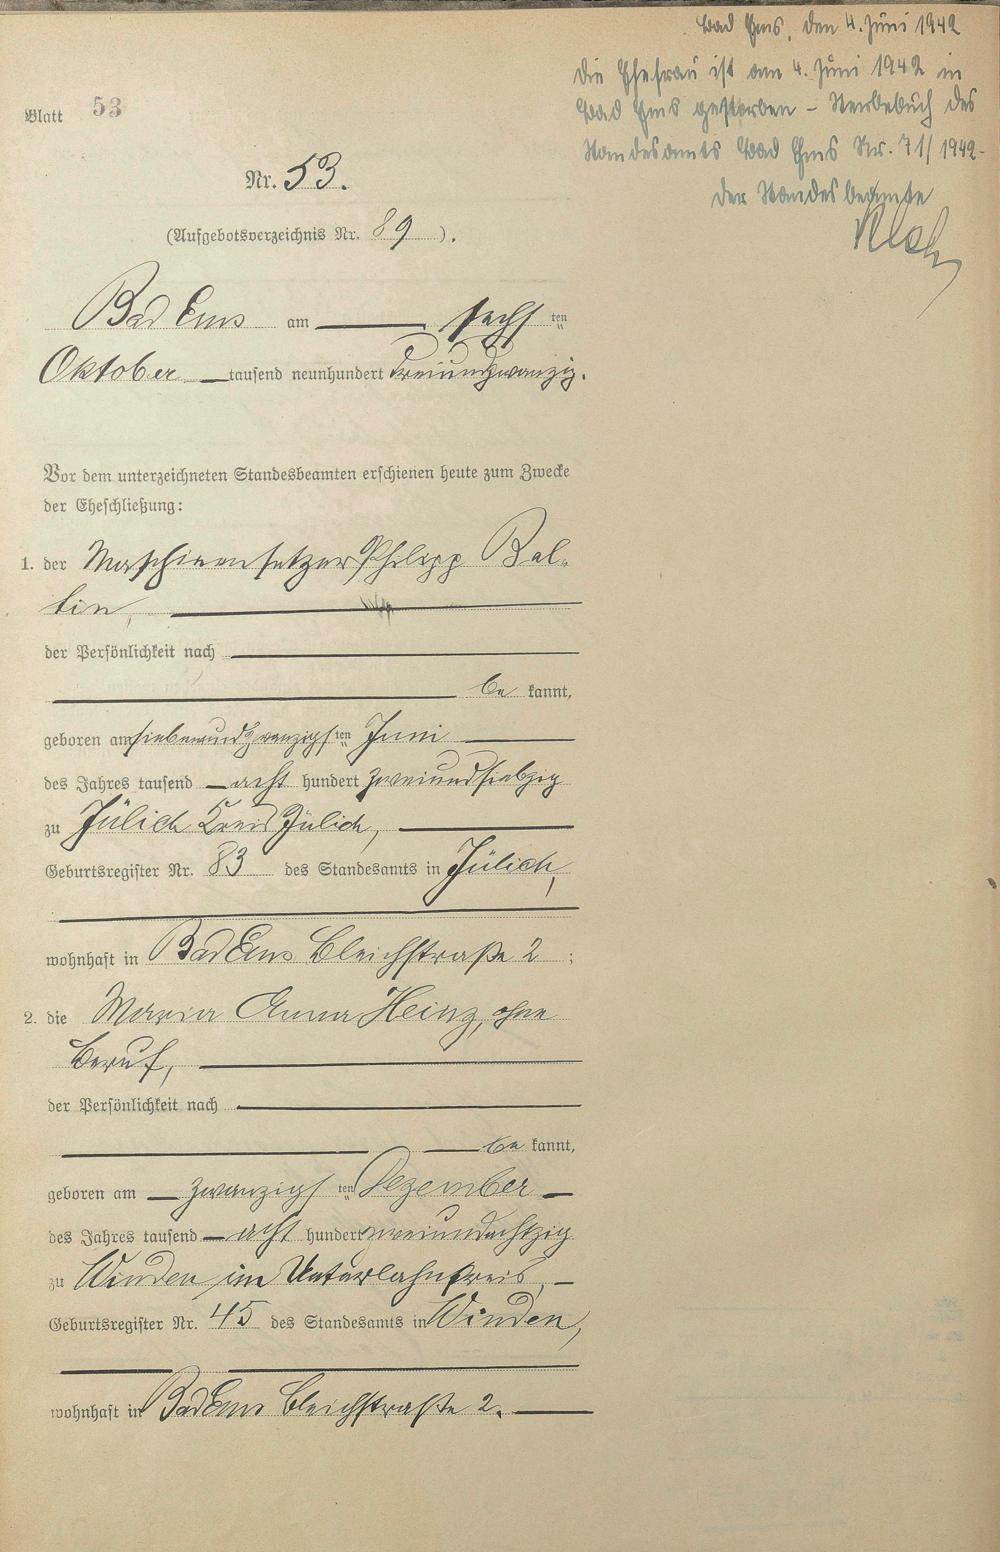 Bad Ems, den 4. Juni 1942
Die Ehefrau ist am 4. Juni 1942 in
Bad Ems gestorben – Sterbebuch des
Standesamts Bad Ems Nr. 71/1942-
Der Standesbeamte
Blatt 53
Nr. 53.
(Aufgebotsverzeichnis Nr. 89).
Bad Ems am sechs ten
Oktober tausend neunhundert dreiundzwanzig.
Vor dem unterzeichneten Standesbeamten erschienen heute zum Zwecke
der Eheschließung:
1. der Maschinensetzer Philipp
der Persönlichkeit nach
be kannt,
geboren am siebenundzwanzigsten Juni
des Jahres tausend acht hundert zweiundsiebzig
zu Jülich Kreis Jülich,
Geburtsregister Nr. 83 des Standesamts in Jülich,
wohnhaft in Bad Ems Bleichstraße 2;
2. die Maria Anna Heinz, ohne
Beruf,
der Persönlichkeit nach
be kannt,
geboren am zwanzigsten Dezember
des Jahres tausend acht hundert zweiundachtzig
zu Winden im Unterlahnkreis,
Geburtsregister Nr. 45 des Standesamts in Winden,
wohnhaft in Bad Ems Bleichstraße 2.